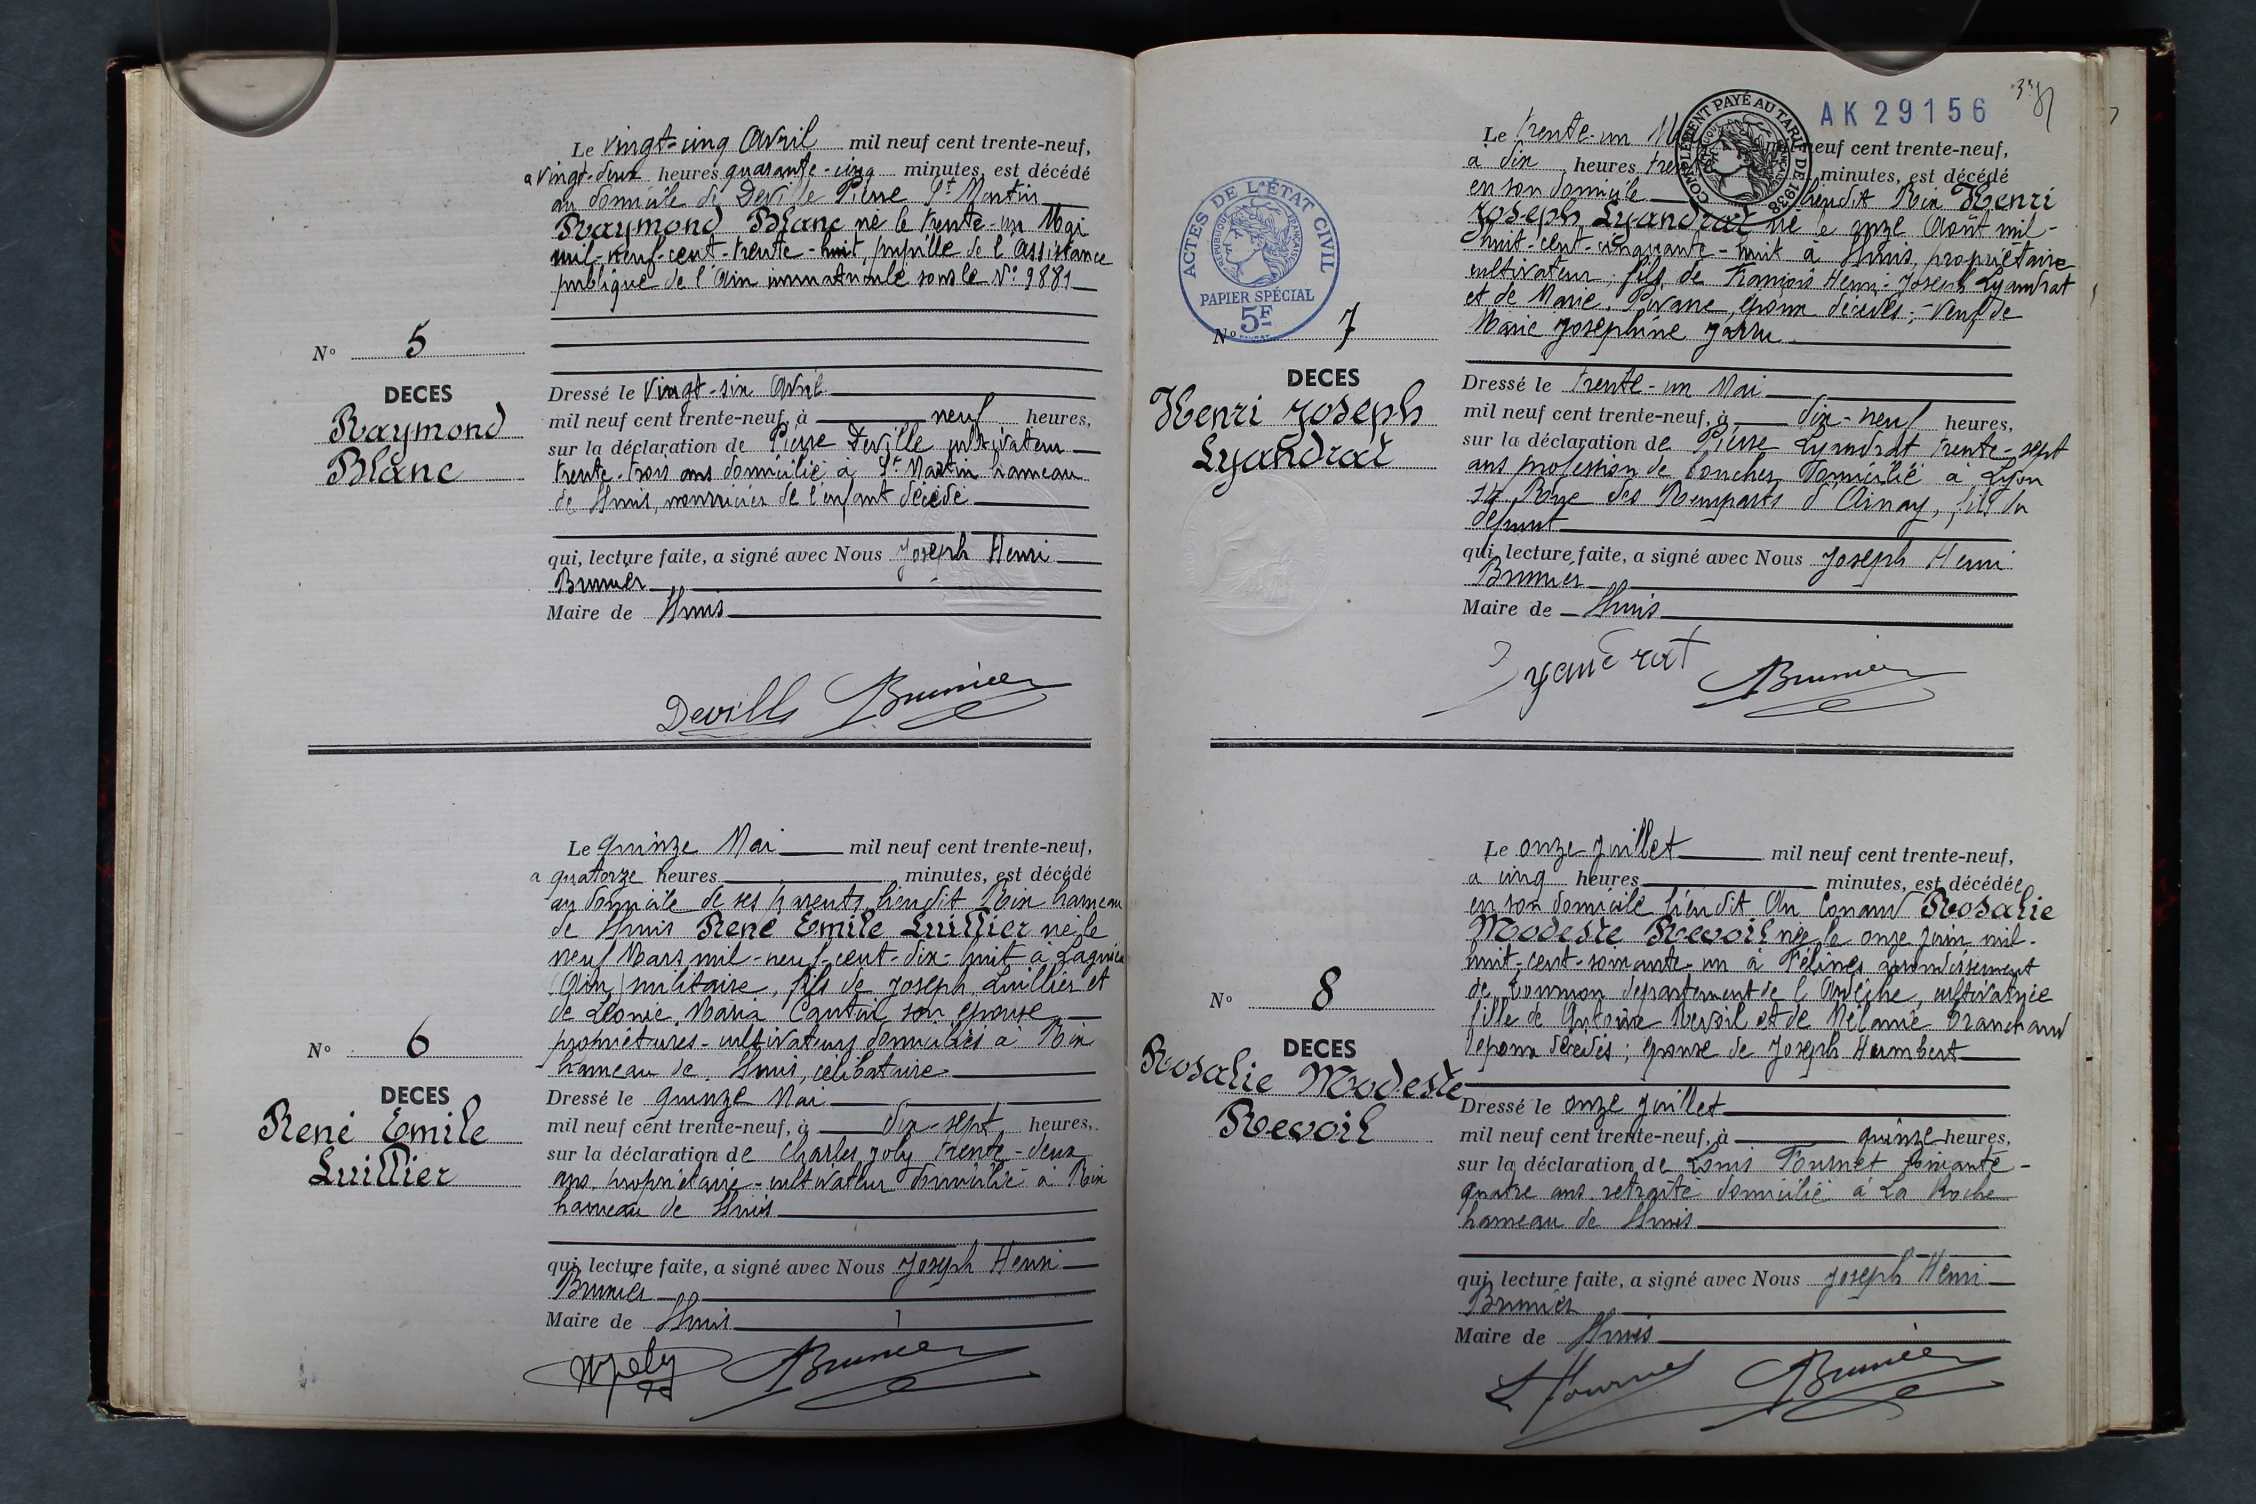 Le vingt-cinq Avril mil neuf cent trente-neuf,
a vingt-deux heures quarante-cinq minutes, est décédé
au domicile de Deville Pierre St Martin
Raymond Blanc né le trente-un Mai
mil-neuf-cent-trente-huit, pupille de l'Assistance
publique de l'Ain immatriculé sous le No 9881
No 5
DECES
Raymond
Blanc
Dressé le vingt-six Avril
mil neuf cent trente-neuf, à neuf heures,
sur la déclaration de Pierre Deville cultivateur
trente-trois ans domicilié à St Martin hameau
de Lhuis, nourricier de l'enfant décédé
qui, lecture faite, a signé avec Nous Joseph Henri
Brunier
Maire de Lhuis
Deville Brunier
Le quinze Mai mil neuf cent trente-neuf,
a quatorze heures minutes, est décédé
au domicile de ses parents, lieudit Rix hameau
de Lhuis René Emile Luillier né le
neuf Mars mil-neuf-cent-dix-huit à Lagnieu
(Ain) militaire, fils de Joseph Luillier et
de Léonie Maria Cantin son épouse
propriétaires-cultivateurs domiciliés à Rix
hameau de Lhuis, célibataire
No 6
DECES
René Emile
Luillier
Dressé le quinze Mai
mil neuf cent trente-neuf, à dix-sept heures,
sur la déclaration de Charles Joly trente-deux
ans propriétaire-cultivateur domicilié à Rix
hameau de Lhuis
qui, lecture faite, a signé avec Nous Joseph Henri
Brunier
Maire de Lhuis
Joly Brunier
AK 29156
COMPLÉMENT PAYÉ AU TARIF DE 1938
ACTES DE L'ÉTAT CIVIL
RÉPUBLIQUE FRANÇAISE
PAPIER SPÉCIAL
5F
Le trente-un neuf cent trente-neuf,
a dix heures minutes, est décédé
en son domicile lieudit Rix Henri
Joseph Lyandrat né le onze Août mil-
huit-cent-cinquante-huit à Lhuis, propriétaire
cultivateur, fils de François Henri-Joseph Lyandrat
et de Marie époux décédés; veuf de
Marie Joséphine
No 7
DECES
Henri Joseph
Lyandrat
Dressé le trente-un Mai
mil neuf cent trente-neuf, à dix-neuf heures,
sur la déclaration de Pierre Lyandrat trente-sept
ans profession de boucher domicilié à Lyon
Rue des Remparts d'Ainay, fils du
défunt
qui, lecture faite, a signé avec Nous Joseph Henri
Brunier
Maire de Lhuis
Lyandrat Brunier
Le onze Juillet mil neuf cent trente-neuf,
a cinq heures minutes, est décédée
en son domicile lieudit Au Conand Rosalie
Modeste Revoil née le onze Juin mil-
huit-cent-soixante-un à Félines arrondissement
de Tournon département de l'Ardèche, cultivatrice
fille de Antoine Revoil et de Mélanie Branchard
époux décédés; épouse de Joseph Humbert
No 8
DECES
Rosalie Modeste
Revoil
Dressé le onze Juillet
mil neuf cent trente-neuf, à quinze heures,
sur la déclaration de Louis Fournet soixante-
quatre ans retraité domicilié à La Roche
hameau de Lhuis
qui, lecture faite, a signé avec Nous Joseph Henri
Brunier
Maire de Lhuis
L Fournet Brunier